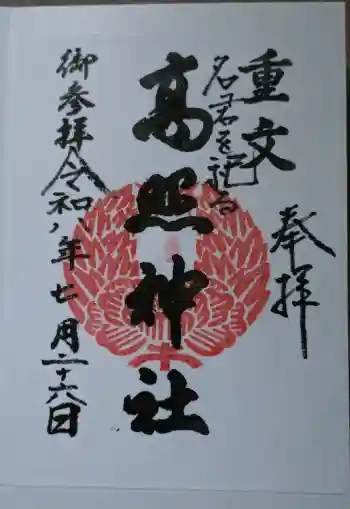 奉拝
重文
名君を祀る
高照神社
御参拝令和八年七月二十六日